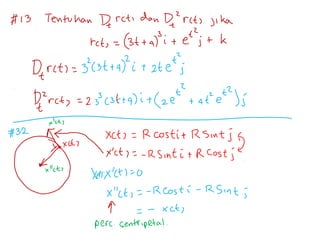 #13 Tentukan D_t r(t) dan D_t^2 r(t) jika
r(t) = (3t+4)^3 i + e^{t^2} j + k
D_t r(t) = 3^2 (3t+4)^2 i + 2t e^{t^2} j
D_t^2 r(t) = 2 3^3 (3t+4) i + (2e^{t^2} + 4t^2 e^{t^2}) j
#32
x'(t)
x(t)
x''(t)
x(t) = R cost i + R sint j
x'(t) = -R sint i + R cost j
x'(t) = 0
x''(t) = -R cost i - R sint j
= - x(t)
perc centripetal